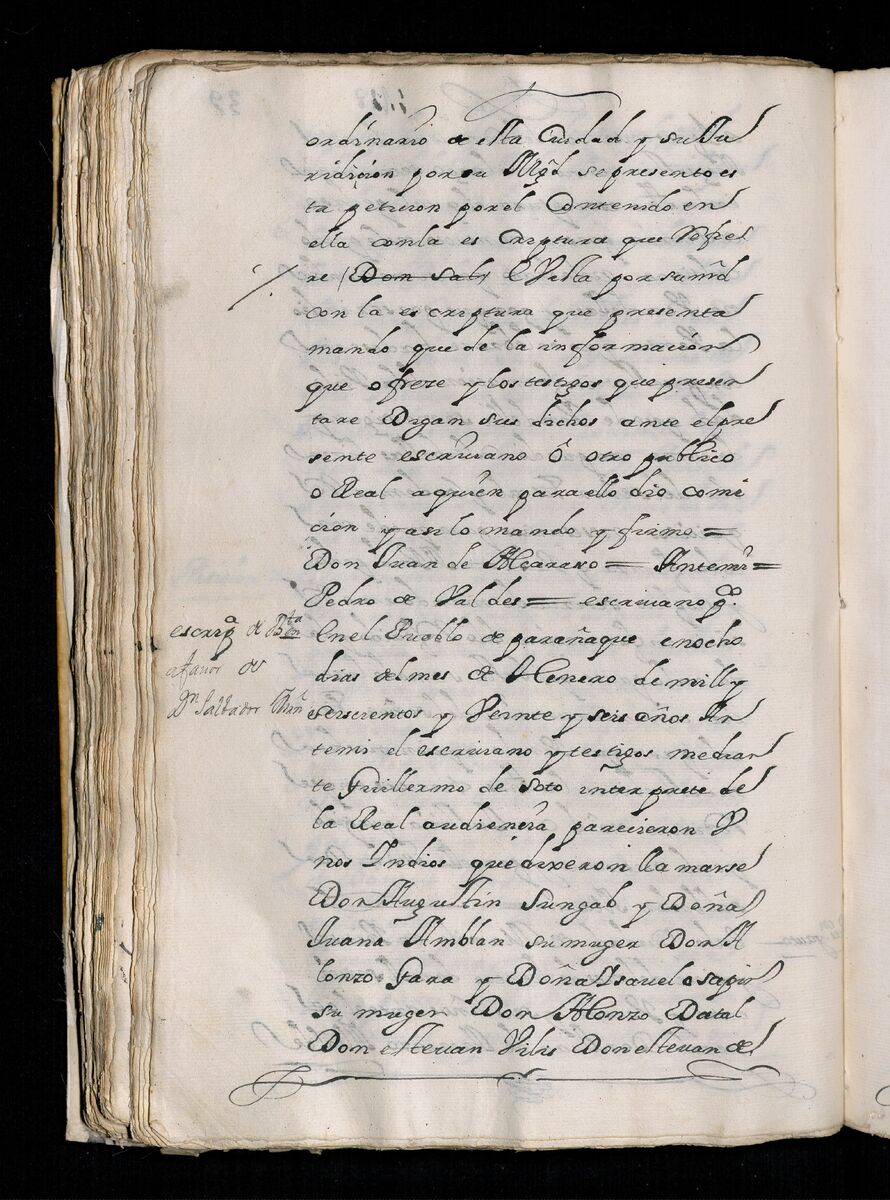 ordinario de esta Ciudad y su Ju
ridicion por su Magd se presento es
ta peticion por el Contenido en
ella con la es Criptura que Refie
re (Don Sal) E Vista por su md
con la es criptura que presenta
mando que de la informacion
que ofreze y los testigos que presen
tare Digan sus dichos ante el pre
sente escriuano ô otro publico
o Real a quien para ello dio comi
cion y asi lo mando y firmo =
Don Juan de Alcaraso = Antemi =
Pedro de Valdes = escriuano pco.
escripa de Vta En el Pueblo de parañaque en ocho
a fauor de dias del mes de Henero de mill y
Dn Saltador seiscientos y Veinte y seis años An
temi el escriuano y testigos median
te Guillermo de Soto interprete de
la Real audiencia parecieron V
nos Indios que dixeron llamarse
Don Augustin Sungab y Doña
Juana Amblan su muger Don A
lonzo Gara y Doña Ysauel osapin
su muger Don Alonzo Datal
Don esteuan Vilis Don esteuan del